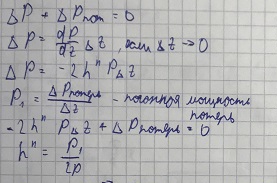 ΔP + ΔPпот = 0
ΔP = dP/dz Δz, если Δz → 0
ΔP = -2hⁿ PΔz
P₁ = ΔPпотерь/Δz - погонная мощность
потерь
-2hⁿ PΔz + ΔPпотерь = 0
hⁿ = P₁/2P